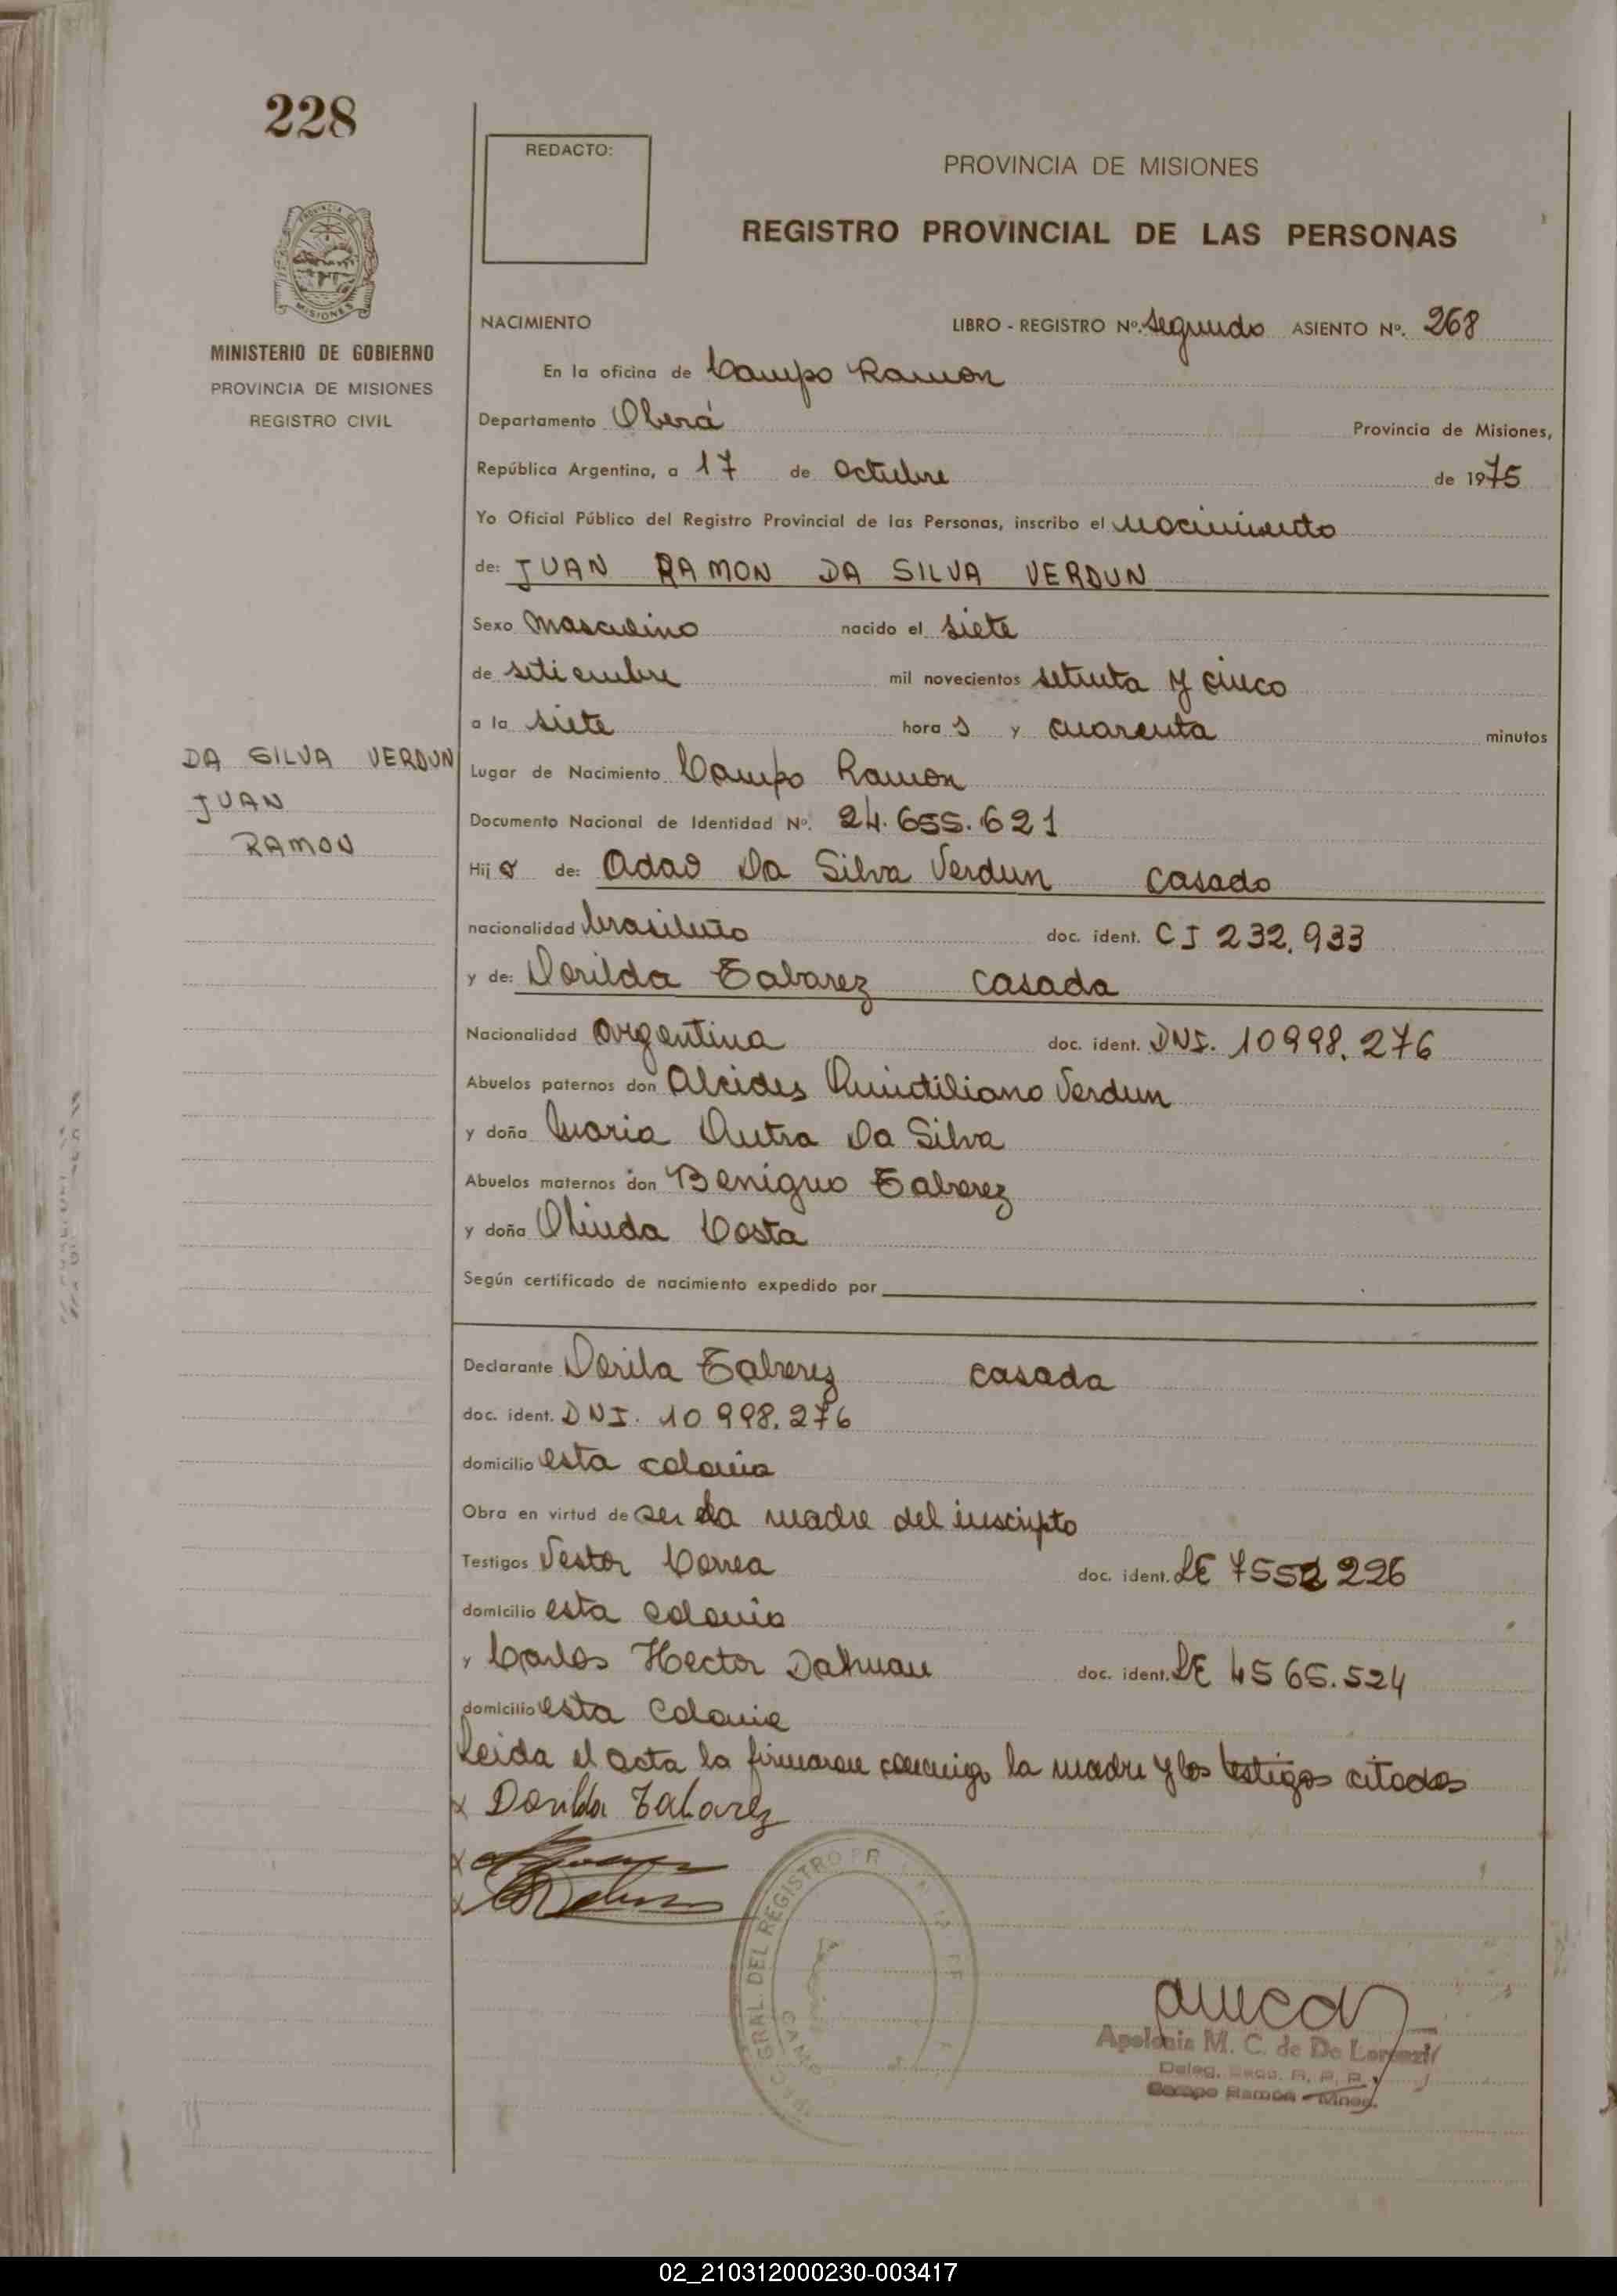 228
REDACTO:
PROVINCIA DE MISIONES
REGISTRO PROVINCIAL DE LAS PERSONAS
MISIONES
MINISTERIO DE GOBIERNO
PROVINCIA DE MISIONES
REGISTRO CIVIL
NACIMIENTO LIBRO - REGISTRO Nº. Segundo ASIENTO Nº. 268
En la oficina de Campo Ramon
Departamento Oberá Provincia de Misiones,
República Argentina, a 17 de Octubre de 1975
Yo Oficial Público del Registro Provincial de las Personas, inscribo el nacimiento
de: JUAN RAMON DA SILVA VERDUN
Sexo masculino nacido el siete
de setiembre mil novecientos setenta y cinco
a la siete hora s y cuarenta minutos
DA SILVA VERDUN
JUAN
RAMON
Lugar de Nacimiento Campo Ramon
Documento Nacional de Identidad Nº. 24.655.621
Hij o de: Adao Da Silva Verdun casado
nacionalidad brasileño doc. ident. CI 232.933
y de: Dorilda Tabarez casada
Nacionalidad argentina doc. ident. DNI. 10998.276
Abuelos paternos don Alcides Quintiliano Verdun
y doña Maria Dutra Da Silva
Abuelos maternos don Benigno Tabarez
y doña Olinda Costa
Según certificado de nacimiento expedido por
Declarante Dorila Tabarez casada
doc. ident. DNI. 10 998.276
domicilio esta colonia
Obra en virtud de ser la madre del inscripto
Testigos Nestor Correa doc. ident. LE 7552 226
domicilio esta colonia
y Carlos Hector Dahman doc. ident. LE 4565.524
domicilio esta Colonia
Leida el acta la firmaron conmigo la madre y los testigos citados
x Dorilda Tabarez
x
x
GRAL. DEL REGISTRO PR
CAMPO
Apolonia M. C. de De Lorenzi
Deleg. R. P. P.
Campo Ramon - Mnes.
02_210312000230-003417